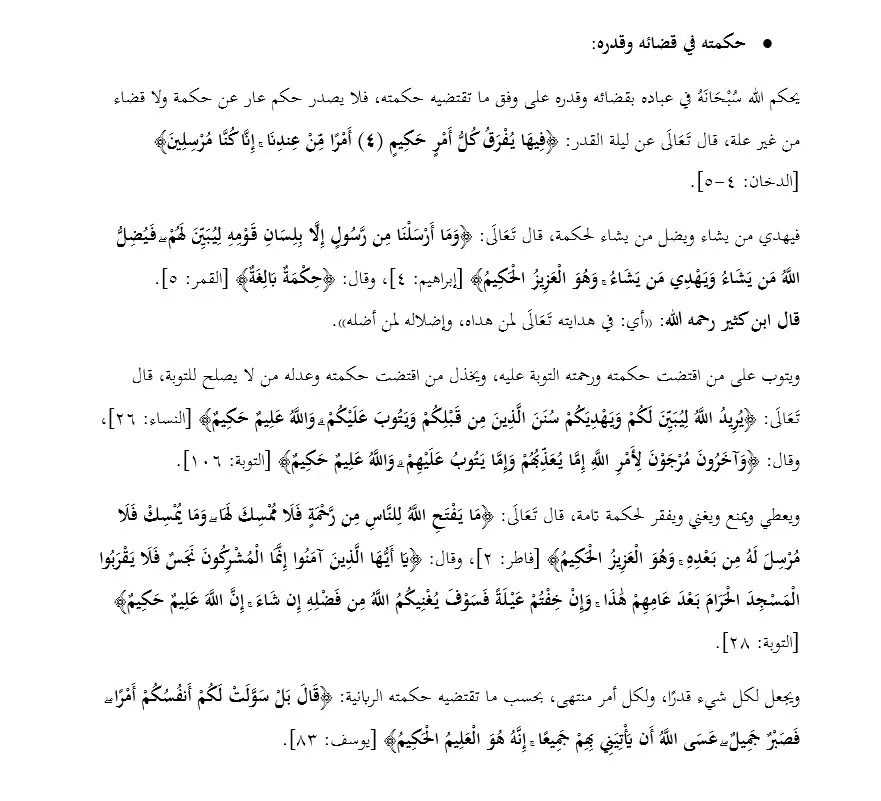 • حكمته في قضائه وقدره:
يحكم الله سُبْحَانَهُ في عباده بقضائه وقدره على وفق ما تقتضيه حكمته، فلا يصدر حكم عار عن حكمة ولا قضاء
من غير علة، قال تَعَالَى عن ليلة القدر: ﴿فِيهَا يُفْرَقُ كُلُّ أَمْرٍ حَكِيمٍ (٤) أَمْرًا مِّنْ عِندِنَا ۚ إِنَّا كُنَّا مُرْسِلِينَ﴾
[الدخان: ٤-٥].
فيهدي من يشاء ويضل من يشاء لحكمة، قال تَعَالَى: ﴿وَمَا أَرْسَلْنَا مِن رَّسُولٍ إِلَّا بِلِسَانِ قَوْمِهِ لِيُبَيِّنَ لَهُمْ ۖ فَيُضِلُّ
اللَّهُ مَن يَشَاءُ وَيَهْدِي مَن يَشَاءُ ۚ وَهُوَ الْعَزِيزُ الْحَكِيمُ﴾ [إبراهيم: ٤]، وقال: ﴿حِكْمَةٌ بَالِغَةٌ﴾ [القمر: ٥].
قال ابن كثير رحمه الله: «أي: في هدايته تَعَالَى لمن هداه، وإضلاله لمن أضله».
ويتوب على من اقتضت حكمته ورحمته التوبة عليه، ويخذل من اقتضت حكمته وعدله من لا يصلح للتوبة، قال
تَعَالَى: ﴿يُرِيدُ اللَّهُ لِيُبَيِّنَ لَكُمْ وَيَهْدِيَكُمْ سُنَنَ الَّذِينَ مِن قَبْلِكُمْ وَيَتُوبَ عَلَيْكُمْ ۗ وَاللَّهُ عَلِيمٌ حَكِيمٌ﴾ [النساء: ٢٦]،
وقال: ﴿وَآخَرُونَ مُرْجَوْنَ لِأَمْرِ اللَّهِ إِمَّا يُعَذِّبُهُمْ وَإِمَّا يَتُوبُ عَلَيْهِمْ ۗ وَاللَّهُ عَلِيمٌ حَكِيمٌ﴾ [التوبة: ١٠٦].
ويعطي ويمنع ويغني ويفقر لحكمة تامة، قال تَعَالَى: ﴿مَا يَفْتَحِ اللَّهُ لِلنَّاسِ مِن رَّحْمَةٍ فَلَا مُمْسِكَ لَهَا ۖ وَمَا يُمْسِكْ فَلَا
مُرْسِلَ لَهُ مِن بَعْدِهِ ۚ وَهُوَ الْعَزِيزُ الْحَكِيمُ﴾ [فاطر: ٢]، وقال: ﴿يَا أَيُّهَا الَّذِينَ آمَنُوا إِنَّمَا الْمُشْرِكُونَ نَجَسٌ فَلَا يَقْرَبُوا
الْمَسْجِدَ الْحَرَامَ بَعْدَ عَامِهِمْ هَٰذَا ۚ وَإِنْ خِفْتُمْ عَيْلَةً فَسَوْفَ يُغْنِيكُمُ اللَّهُ مِن فَضْلِهِ إِن شَاءَ ۚ إِنَّ اللَّهَ عَلِيمٌ حَكِيمٌ﴾
[التوبة: ٢٨].
ويجعل لكل شيء قدرًا، ولكل أمر منتهى، بحسب ما تقتضيه حكمته الربانية: ﴿قَالَ بَلْ سَوَّلَتْ لَكُمْ أَنفُسُكُمْ أَمْرًا ۖ
فَصَبْرٌ جَمِيلٌ ۖ عَسَى اللَّهُ أَن يَأْتِيَنِي بِهِمْ جَمِيعًا ۚ إِنَّهُ هُوَ الْعَلِيمُ الْحَكِيمُ﴾ [يوسف: ٨٣].